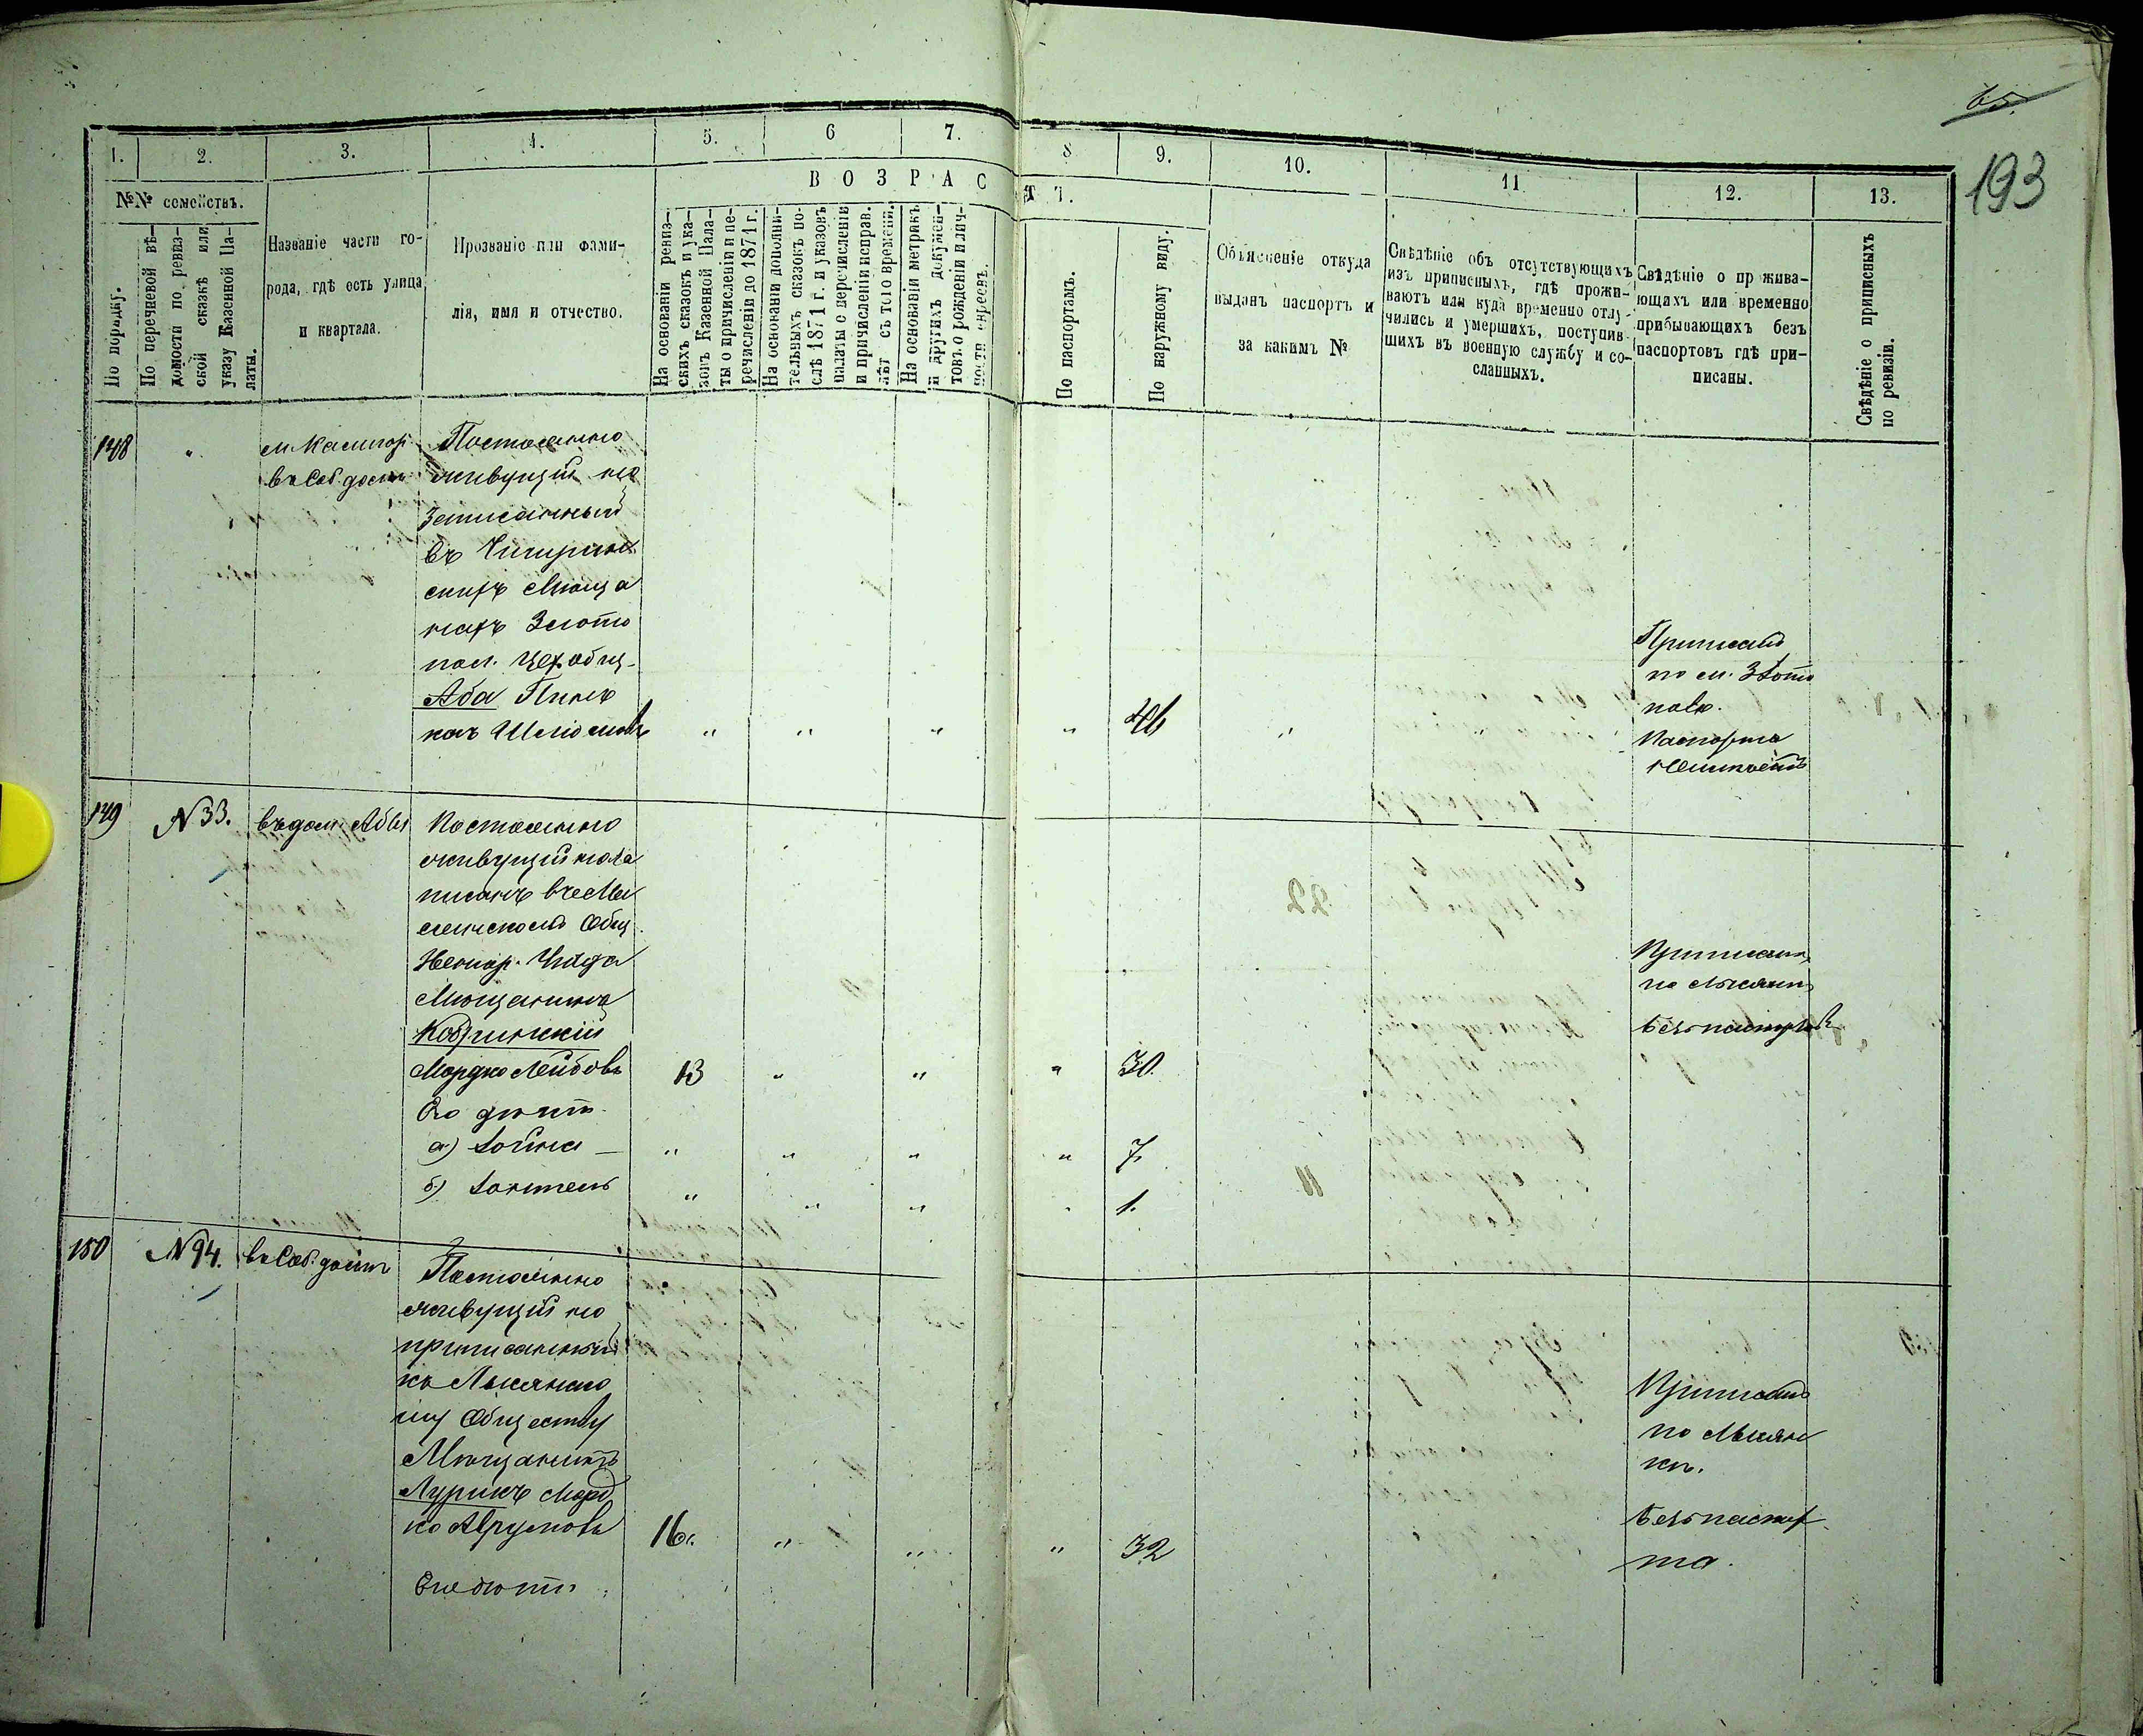 65
193
1. 2. 3. 4. 5. 6 7. 8 9. 10. 11 12. 13.
В О З Р А С Т Ъ.
№№ семействъ.
По порядку.
По перечневой вѣ-
домости по ревиз-
ской сказкѣ или
указу Казенной Па-
латы.
Названіе части го-
рода, гдѣ есть улица
и квартала.
Прозваніе или фами-
лія, имя и отчество.
На основаніи ревиз-
скихъ сказокъ и ука-
зовъ Казенной Пала-
ты о причисленіи и пе-
речисленіи до 1871 г.
На основаніи дополни-
тельныхъ сказокъ по-
слѣ 1871 г. и указовъ
палаты о перечисленіи
и причисленіи исправ.
лѣт съ того времени.
На основаніи метрикъ
и другихъ докумен-
товъ о рожденіи и лич-
ности евреевъ.
По паспортамъ.
По наружному виду.
Объясненіе откуда
выданъ паспортъ и
за какимъ №
Свѣдѣніе объ отсутствующихъ
изъ приписныхъ, гдѣ прожи-
ваютъ или куда временно отлу-
чились и умершихъ, поступив-
шихъ въ военную службу и со-
сланныхъ.
Свѣдѣніе о прожива-
ющихъ или временно
прибывающихъ безъ
паспортовъ гдѣ при-
писаны.
Свѣдѣніе о приписныхъ
по ревизіи.
148 " въ Соб. домѣ
Постоянно
живущій но
записанный
въ Чигирин
скихъ Мѣща
нахъ Злато
пол. общ-
Аба Пинь
касъ Шліомовъ " " " " 46 "
Приписанъ
по м. Злато
полю.
Паспорта
неимѣетъ
149 №33. въ дом. Абы
Постоянно
живущій но за
писанъ въ
Общ.
Мѣщанинъ
Кобринскій
Мордко Лейбовъ 13 " " " 30.
Его дѣти
а) " " " " 7
б) " " " " 1.
Приписан
по Лысянк
безъ паспорта
150 №94. въ Соб. домѣ
Постоянно
живущій но
приписанный
къ Лысянско
му Обществу
Мѣщанинъ
Лурикъ Морд
ко Аврумовъ 16. " " " 32
Его дѣти
Приписанъ
по Лысян
кѣ.
безъ паспор
та.